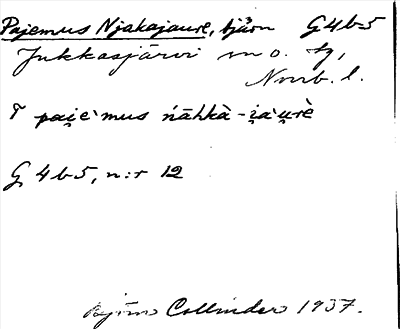 Pajemus Njakajaure, tjärn G4b5
Jukkasjärvi sn o. tg,
Nrrb. l.
T pai̯ḙ`mus ńāhkà-i̯a`u̯rè
G 4b5, n:r 12
Björn Collinder 1937.